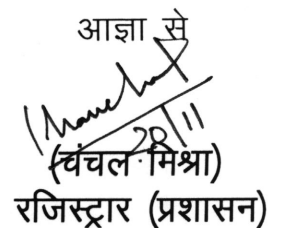 आज्ञा से
20/11
(चंचल मिश्रा)
रजिस्ट्रार (प्रशासन)